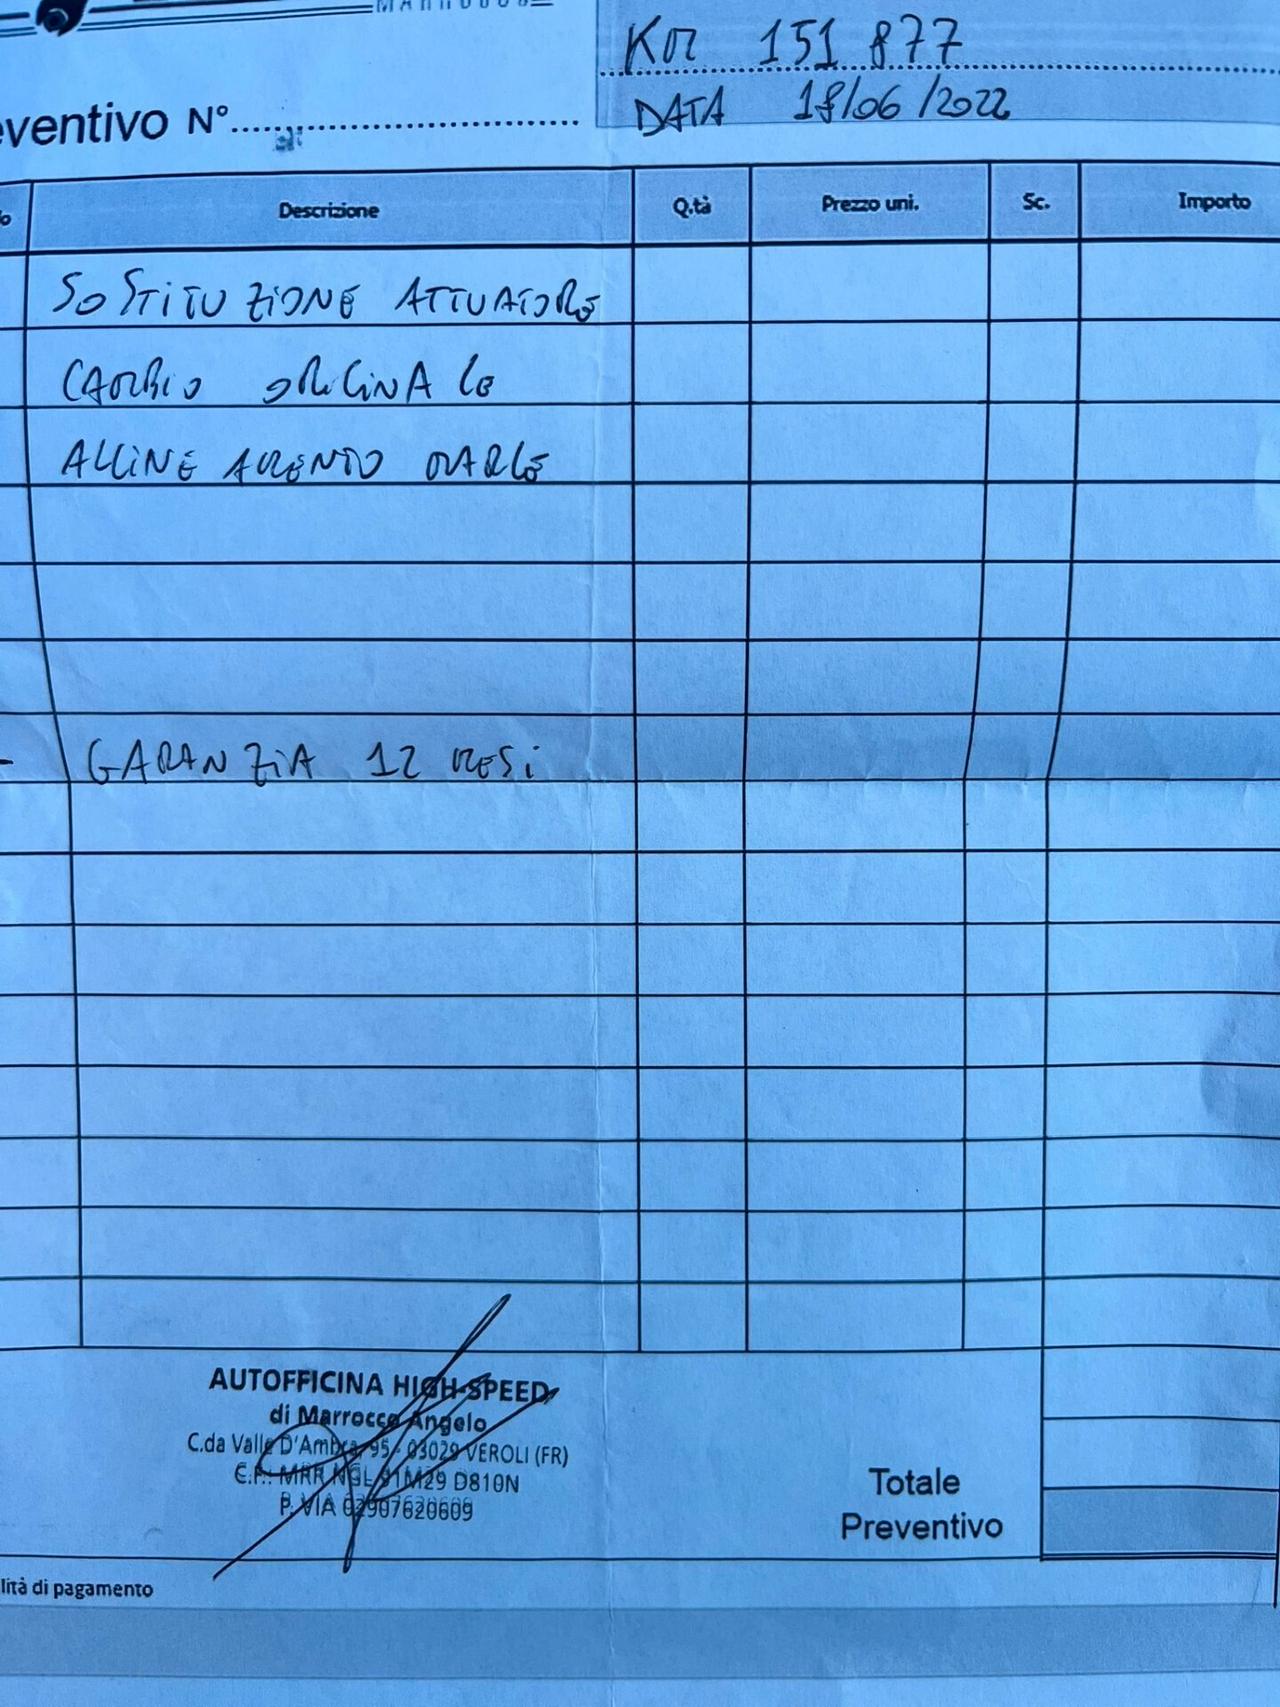 KM 151 877
eventivo N°
DATA 18/06/2022
Descrizione Q.tà Prezzo uni. Sc. Importo
SOSTITUZIONE ATTUATORE
CAMBIO ORIGINALE
ALLINEAMENTO MARCE
- GARANZIA 12 MESI
AUTOFFICINA HIGH-SPEED
di Marrocco Angelo
C.da Valle D'Ambra, 95 - 03029 VEROLI (FR)
C.F.: MRR NGL 91M29 D810N
P. VIA 02907620609
Totale
Preventivo
lità di pagamento